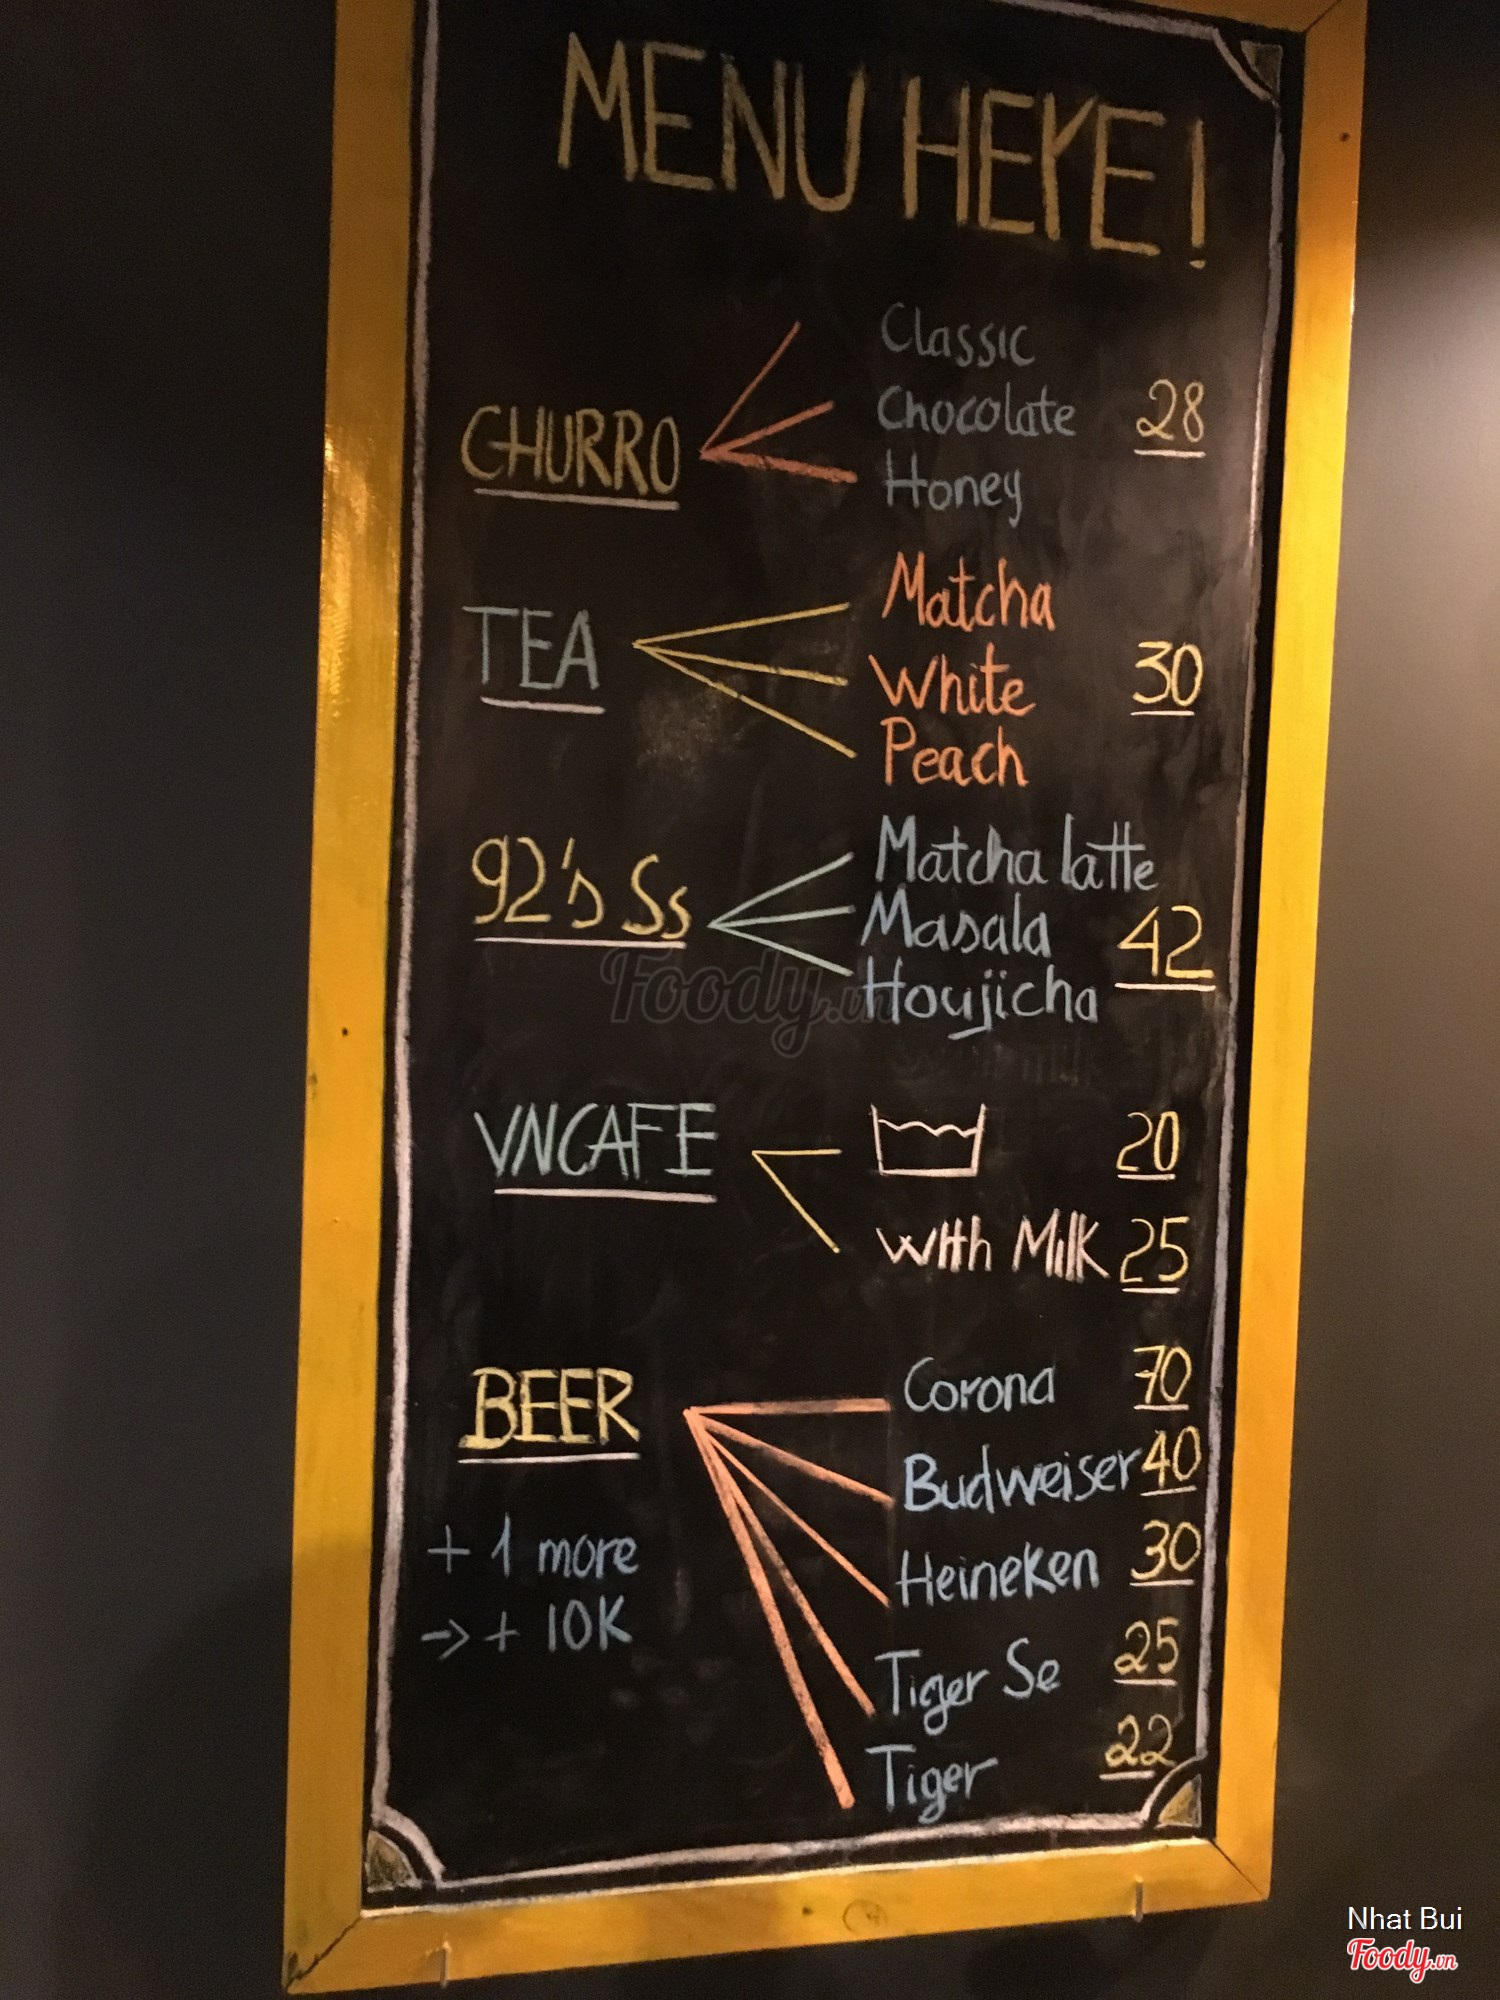 MENU HERE!
Classic
CHURRO Chocolate 28
Honey
Matcha
TEA White 30
Peach
Matcha latte
92's Ss Masala 42
Houjicha
Foody.vn
VNCAFE 20
with Milk 25
BEER Corona 70
Budweiser 40
+ 1 more Heineken 30
→ + 10K
Tiger Se 25
Tiger 22
Nhat Bui
Foody.vn